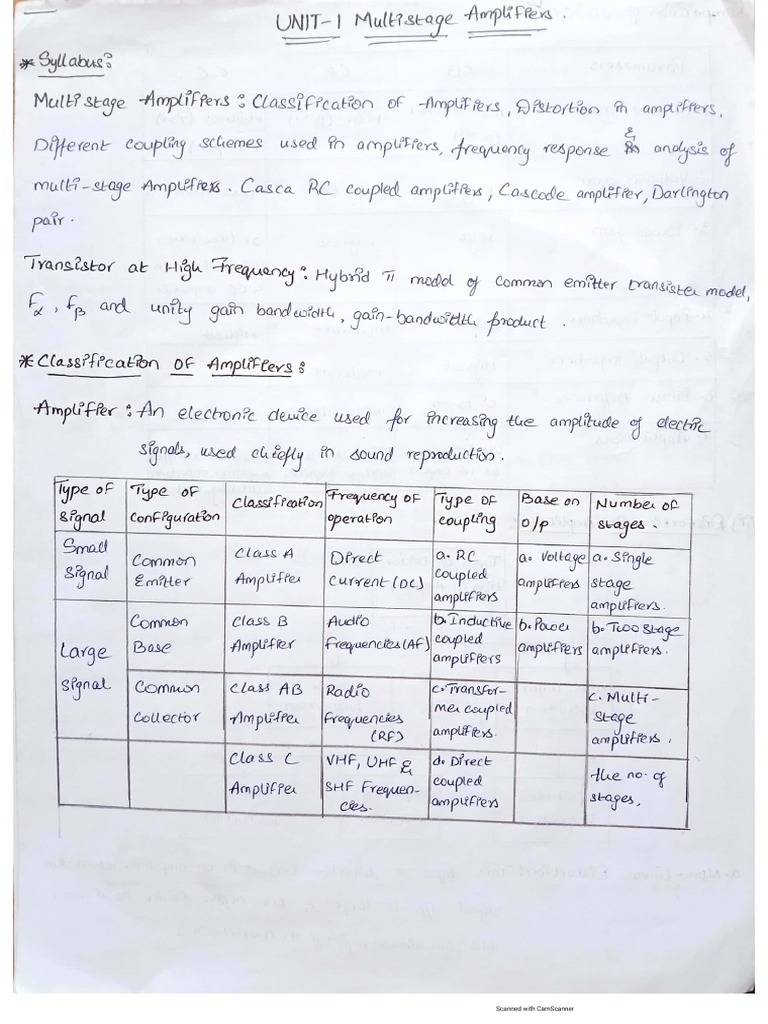 UNIT-1 Multistage Amplifiers.
* Syllabus:
Multistage Amplifiers: Classification of Amplifiers, Distortion in amplifiers,
Different coupling schemes used in amplifiers, frequency response & analysis of
multi-stage Amplifiers. Casca RC coupled amplifiers, Cascode amplifier, Darlington
pair.
Transistor at High Frequency: Hybrid π model of common emitter transistor model,
Fα, fβ and unity gain bandwidth, gain-bandwidth product.
* Classification OF Amplifiers:
Amplifier: An electronic device used for increasing the amplitude of electric
signals, used chiefly in sound reproduction.
Type of signal | Type of configuration | Classification | Frequency of operation | Type of coupling | Base on o/p | Number of stages.
Small signal | Common Emitter | Class A Amplifier | Direct Current (DC) | a. RC coupled amplifiers | a. Voltage amplifiers | a. Single stage amplifiers.
Large signal | Common Base | Class B Amplifier | Audio Frequencies (AF) | b. Inductive coupled amplifiers | b. Power amplifiers | b. Two stage amplifiers.
Common Collector | Class AB Amplifier | Radio Frequencies (RF) | c. Transfor-mer coupled amplifiers. | c. Multi-stage amplifiers.
Class C Amplifier | VHF, UHF & SHF Frequen-cies. | d. Direct coupled amplifiers | the no. of stages,
Scanned with CamScanner